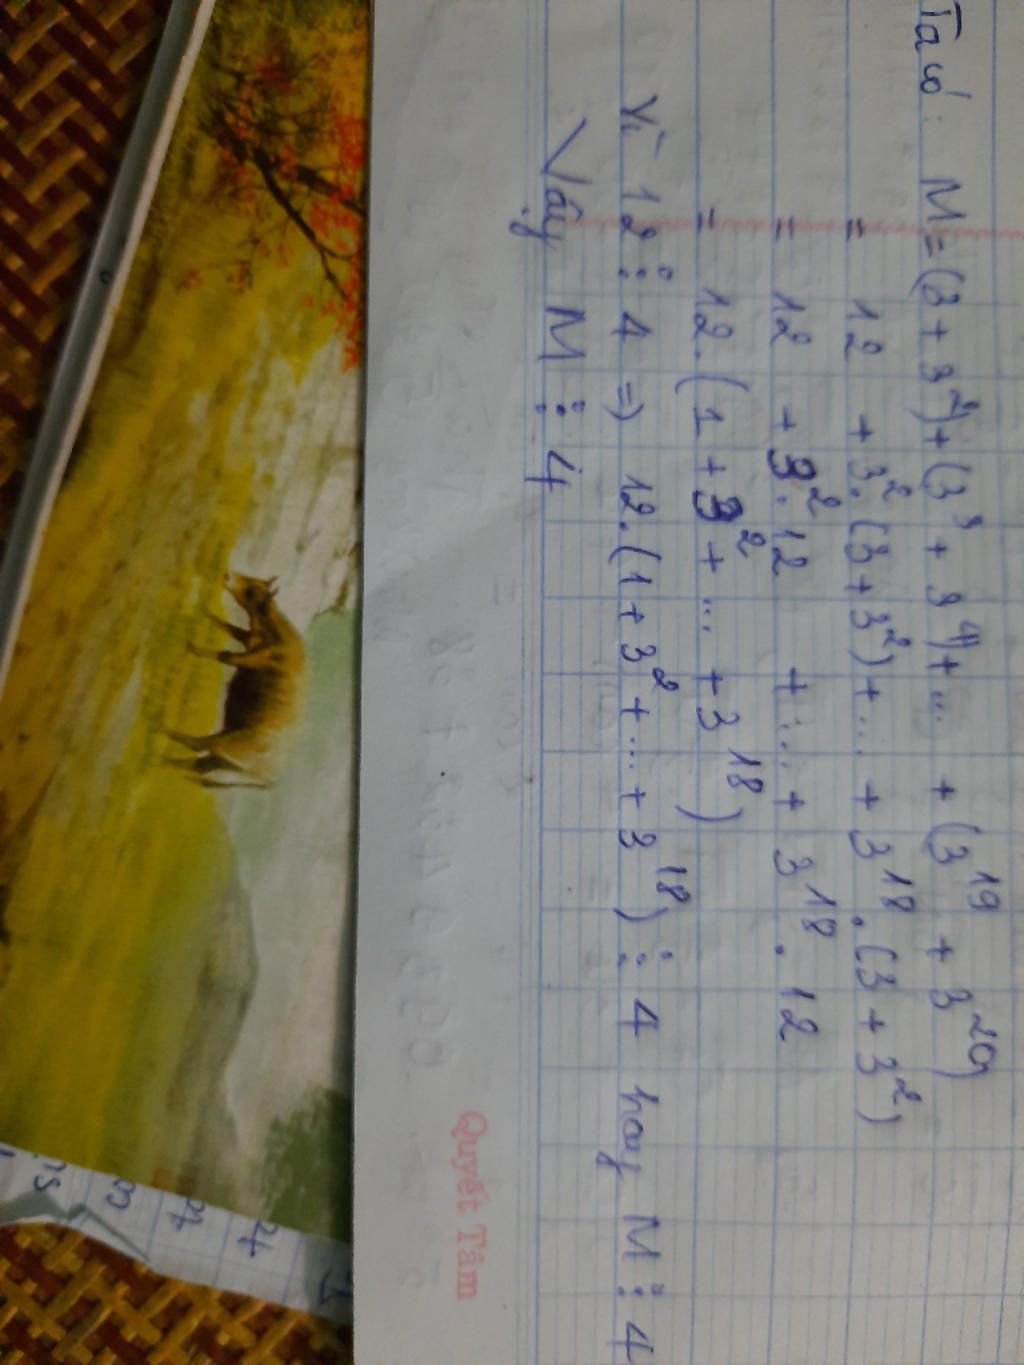 Ta có: M = (3 + 3²) + (3³ + 3⁴) + ... + (3¹⁹ + 3²⁰)
= 12 + 3².(3 + 3²) + ... + 3¹⁸.(3 + 3²)
= 12 + 3².12 + ... + 3¹⁸.12
= 12.(1 + 3² + ... + 3¹⁸)
Vì 12 ⋮ 4 => 12.(1 + 3² + ... + 3¹⁸) ⋮ 4 hay M ⋮ 4
Vậy M ⋮ 4
Quyết Tâm